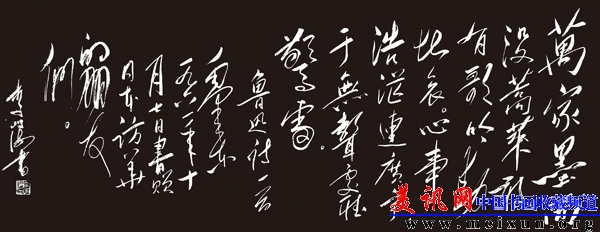 萬家墨面
沒蒿萊敢
有歌吟動
地哀。心事
浩茫連廣宇
于無聲處聽
驚雷。
魯迅詩一首
毛澤东
一九六一年十
月七日書贈
日本訪華
的朋友
們。
李 書
美讯网 中国书画收藏频道
www.meixun.org